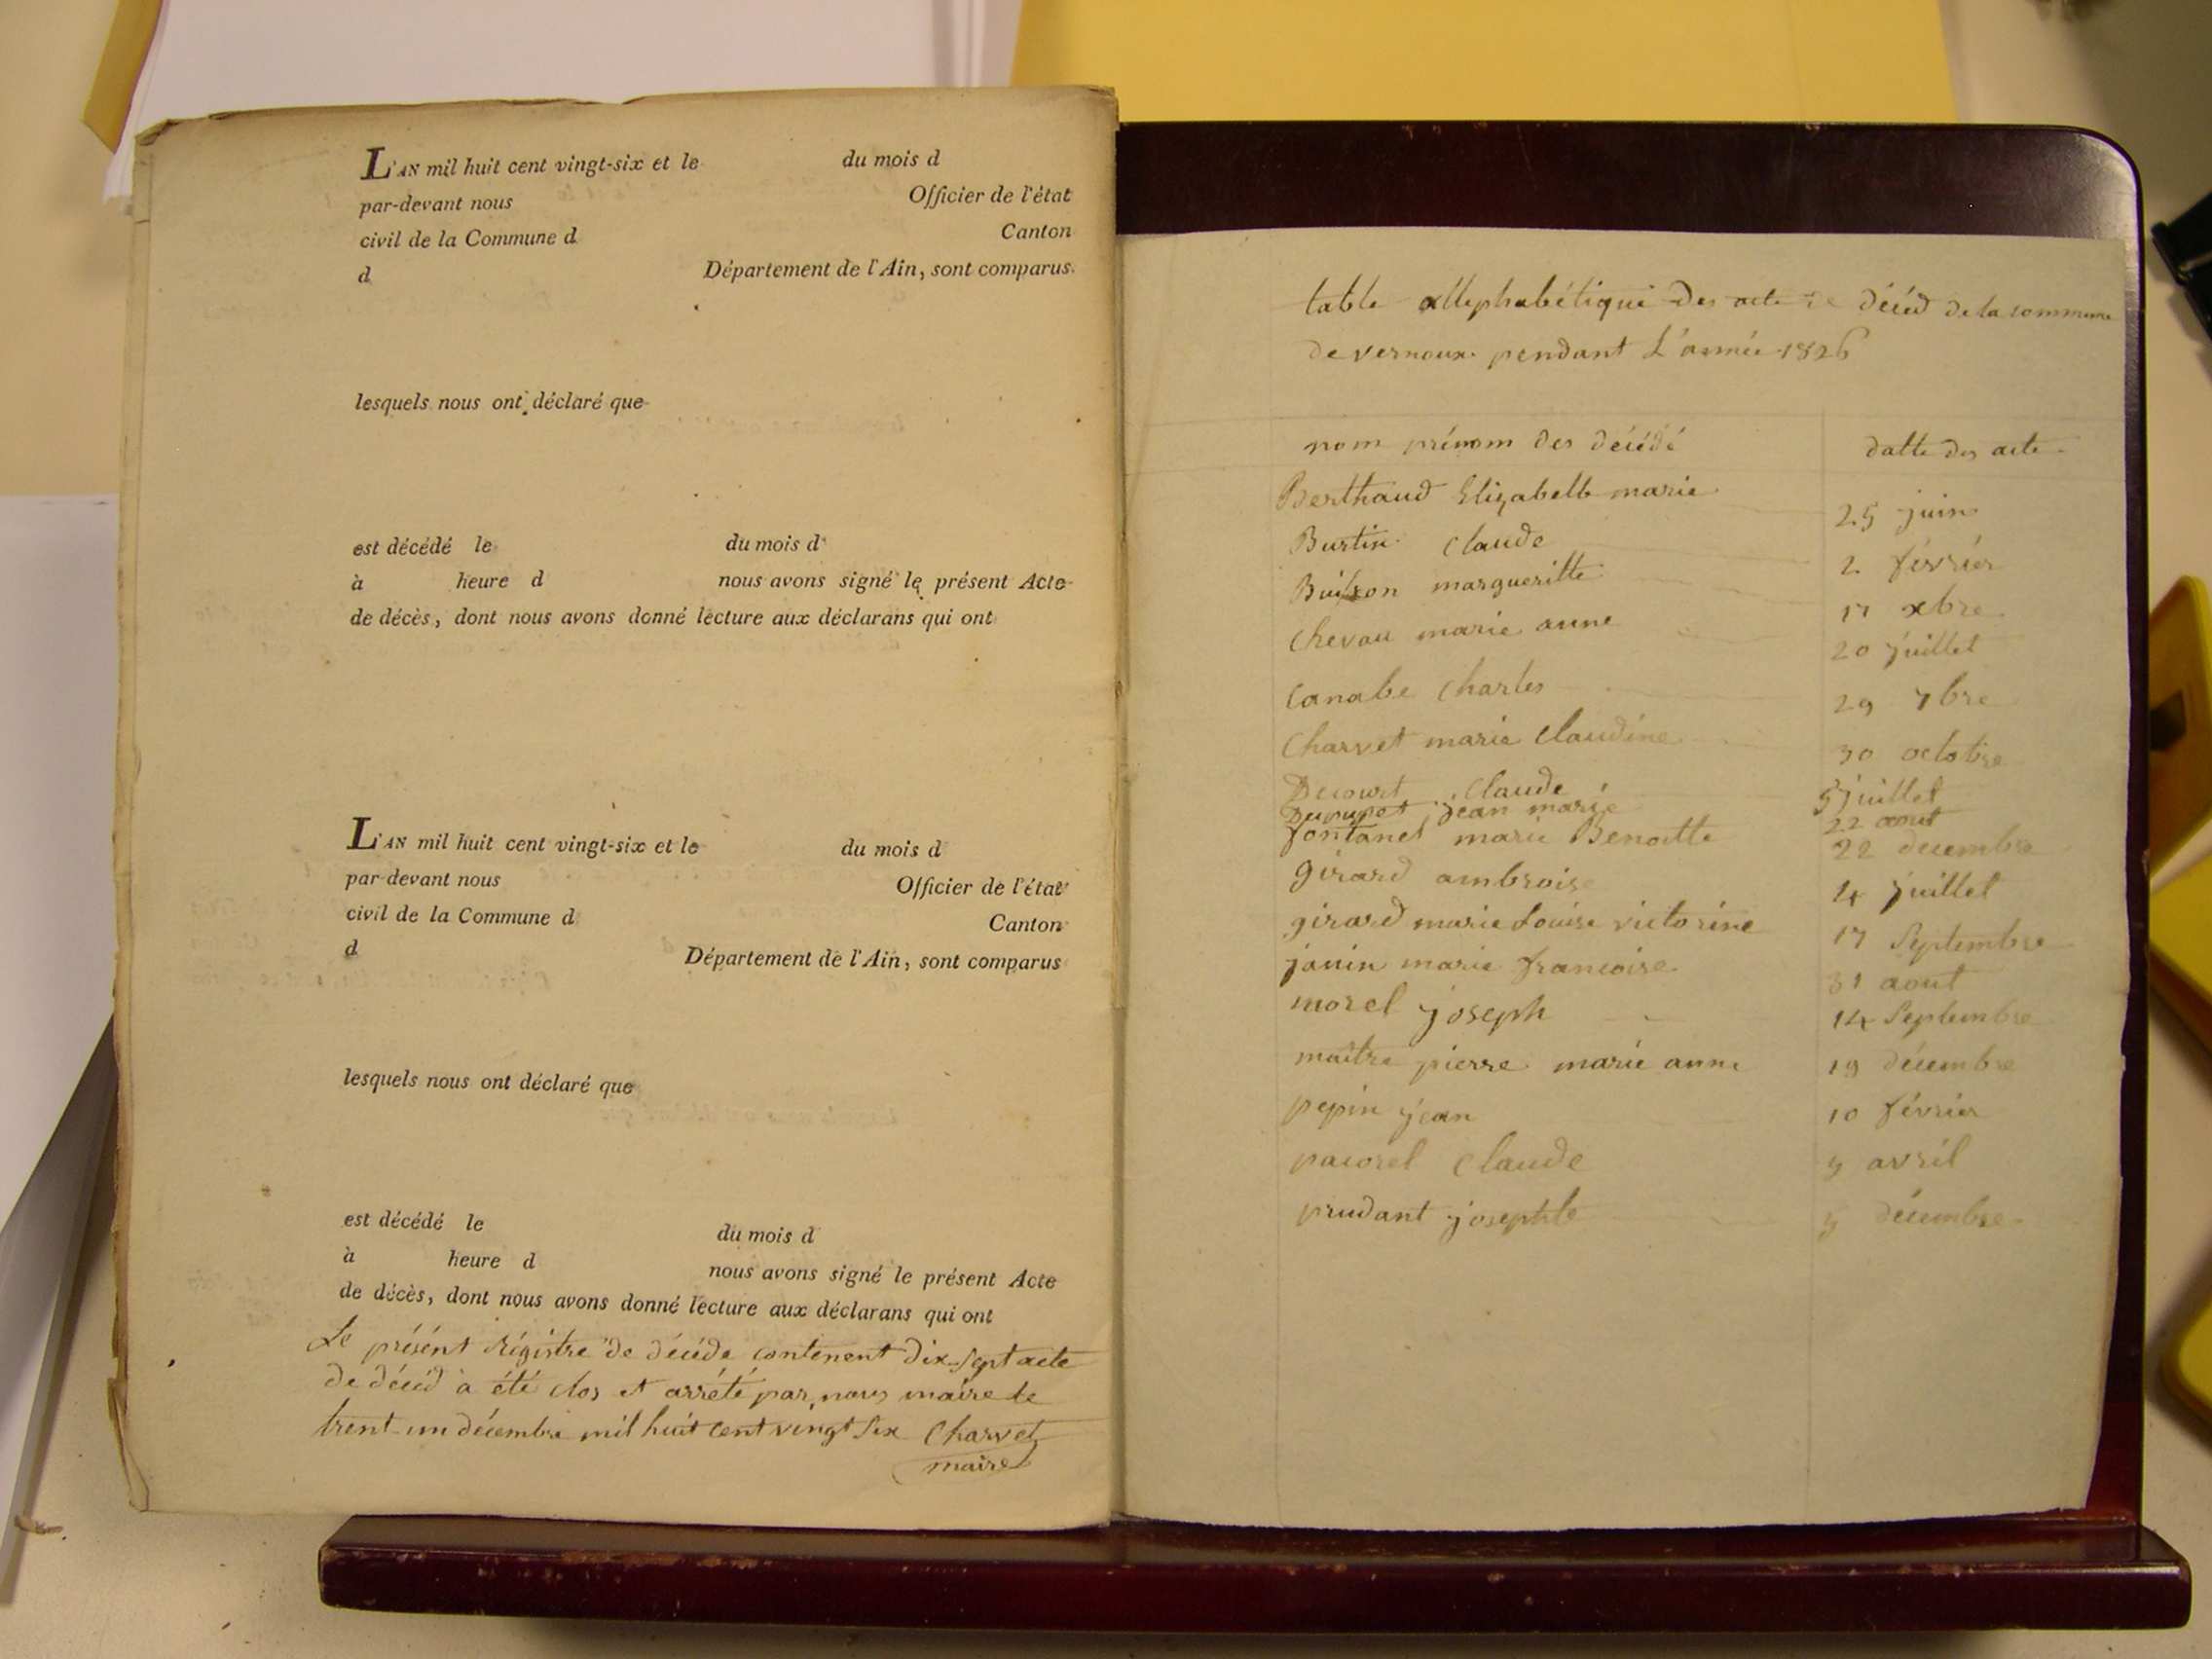 L'AN mil huit cent vingt-six et le du mois d
par-devant nous Officier de l'état
civil de la Commune d Canton
d Département de l'Ain, sont comparus
lesquels nous ont déclaré que
est décédé le du mois d
à heure d nous avons signé le présent Acte
de décès, dont nous avons donné lecture aux déclarans qui ont
L'AN mil huit cent vingt-six et le du mois d
par-devant nous Officier de l'état
civil de la Commune d Canton
d Département de l'Ain, sont comparus
lesquels nous ont déclaré que
est décédé le du mois d
à heure d nous avons signé le présent Acte
de décès, dont nous avons donné lecture aux déclarans qui ont
Le présent Régistre de décéde contenent dix-sept acte
de décéd à été clos et arrété par nous maire le
trent-un décembre mil huit cent vingt six Charvet
maire
table allephabétique des acte de décéd de la commune
de vernoux pendant L'année 1826
nom prénom des décédé datte des acte
Berthaud Elizabelt marie 25 juin
Burtin Claude 2 février
Buisson margueritte 17 xbre
Chevau marie anne 20 juillet
Canabe Charles 29 7bre
Charvet marie Claudine 30 octobre
Decourt Claude 5 juillet
Dupupet jean marie 22 aout
fontanel marie Benoitte 22 decembre
girard ambroise 14 juillet
girard marie Louise victorine 17 Septembre
janin marie francoise 31 aout
morel joseph 14 Septembre
maitre pierre marie anne 19 décembre
pepin jean 10 février
pacorel Claude 5 avril
prudant josephte 5 décembre